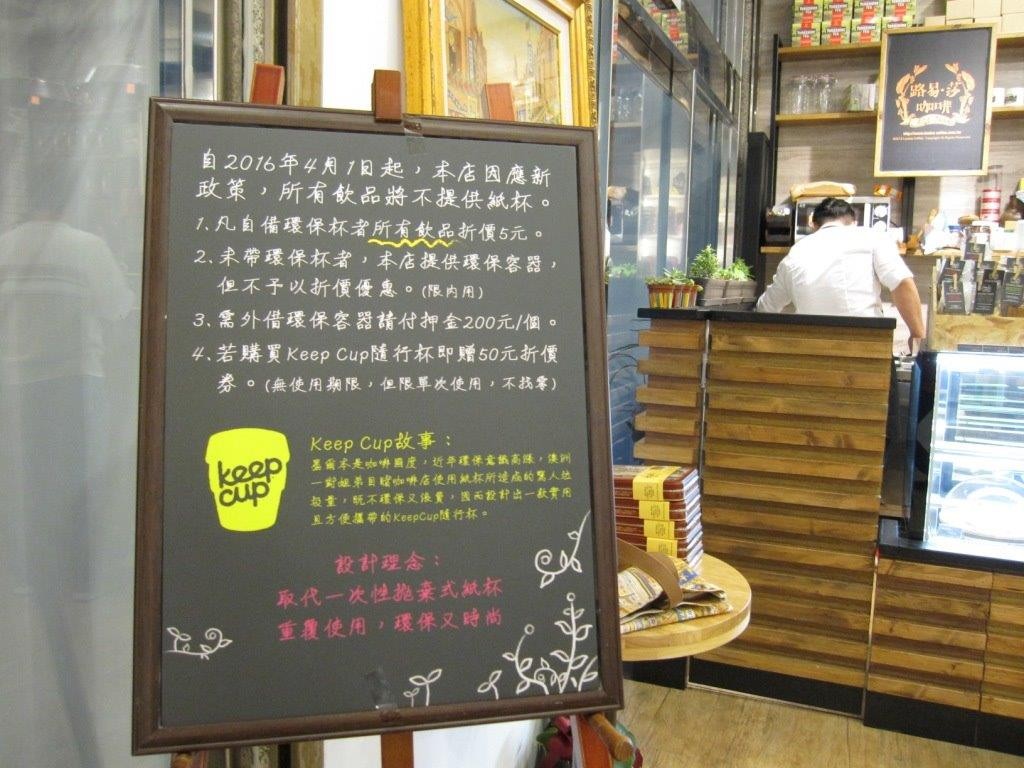 自2016年4月1日起，本店因應新
政策，所有飲品將不提供紙杯。
1. 凡自借環保杯者所有飲品折價5元。
2. 未帶環保杯者，本店提供環保容器，
但不予以折價優惠。(限內用)
3. 需外借環保容器請付押金200元/個。
4. 若購買Keep Cup隨行杯即贈50元折價
券。(無使用期限，但限單次使用，不找零)
keep
cup
Keep Cup故事：
墨爾本是咖啡國度，近年環保意識高漲，澳洲
一對姐弟目睹咖啡店使用紙杯所造成的驚人垃
圾量，既不環保又浪費，因而設計出一款實用
且方便攜帶的KeepCup隨行杯。
設計理念：
取代一次性拋棄式紙杯
重覆使用，環保又時尚
路易·莎
咖啡